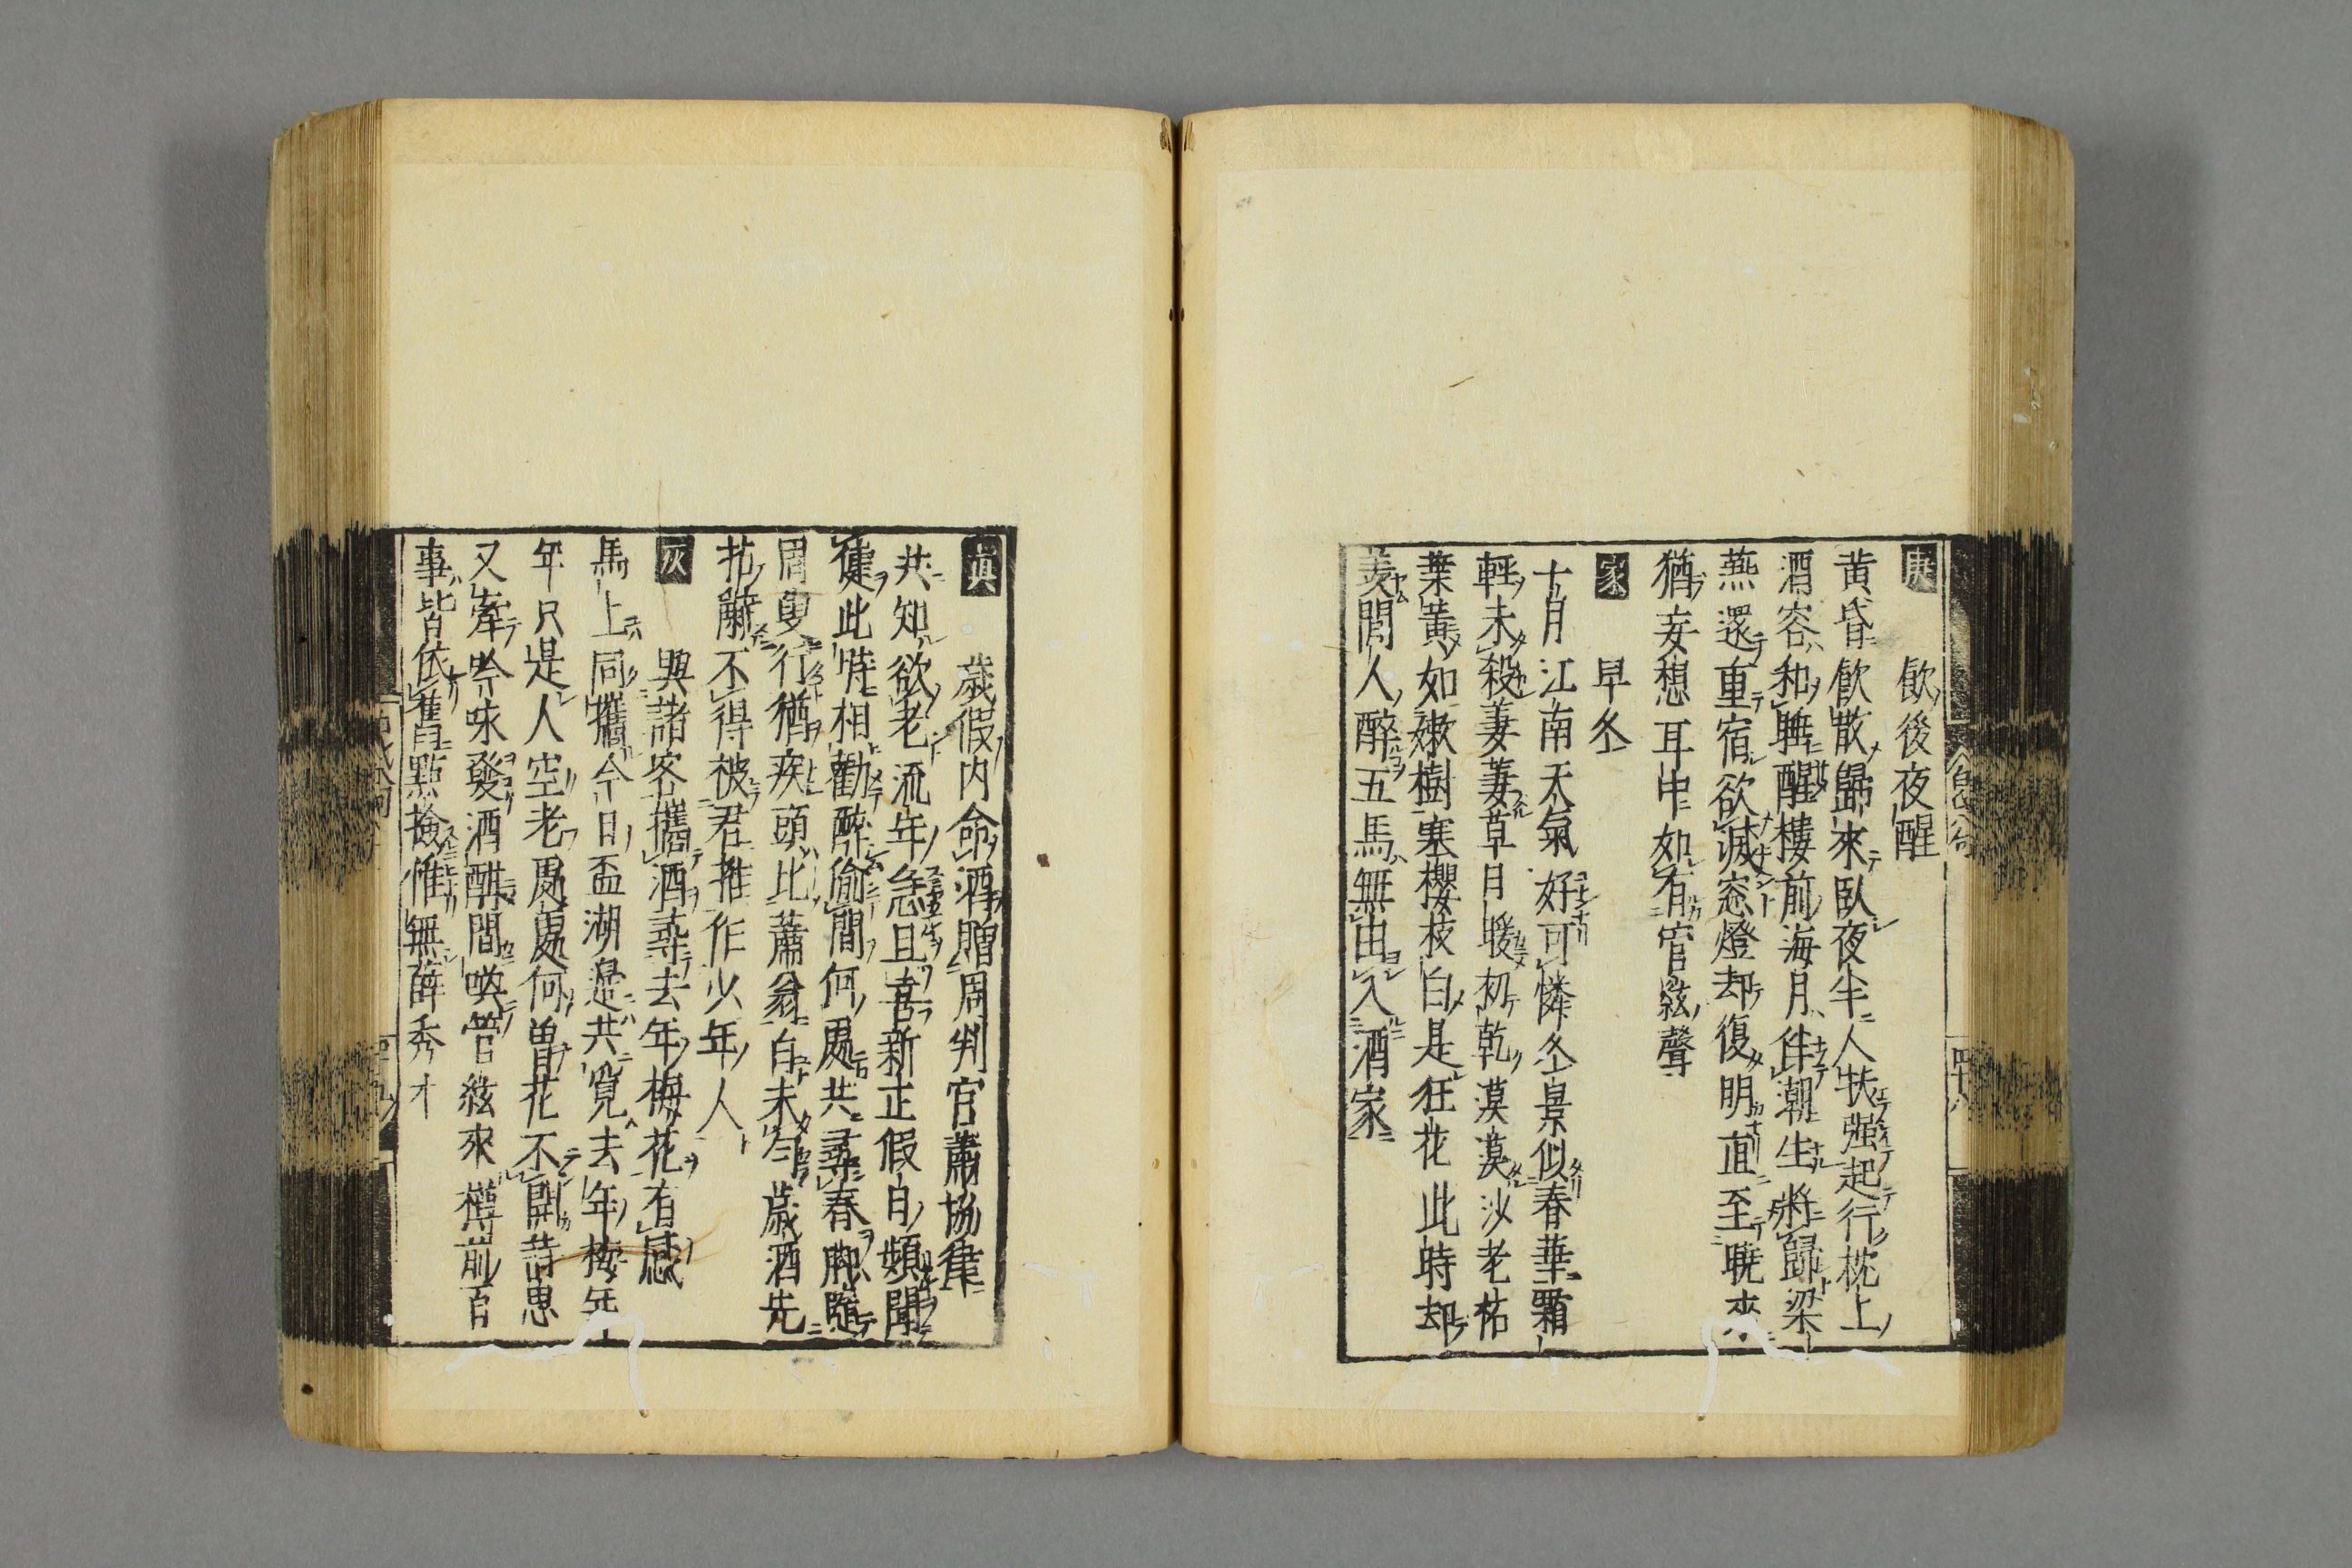 庚
飲後夜醒
黄昏飲散歸來臥夜半人扶強起行枕上
酒容和睡醒樓前海月伴潮生將歸梁
燕還重宿欲滅窓燈却復明直至曉來
猶妄想耳中如有官絃聲
家
早冬
十月江南天氣好可憐冬景似春華霜
輕未殺萋萋草日暖初乾漠漠沙老柘
葉黄如嫩樹寒櫻枝白是狂花此時却
羨閒人醉五馬無由入酒家
眞
歳假内命酒贈周判官蕭協律
共知欲老流年急且喜新正假日頻聞
健此時相勸醉偷間何處共尋春脚隨
周叟行猶疾頭比蕭翁白未匀歳酒先
拈辭不得被君推作少年人
灰
與諸客攜酒尋去年梅花有感
馬上同攜今日盃湖邉共覓去年梅年
年只是人空老處處何曽花不開昔思
又牽吟咏發酒酣間喚管絃來樽前百
事皆依舊點撿惟無薛秀才